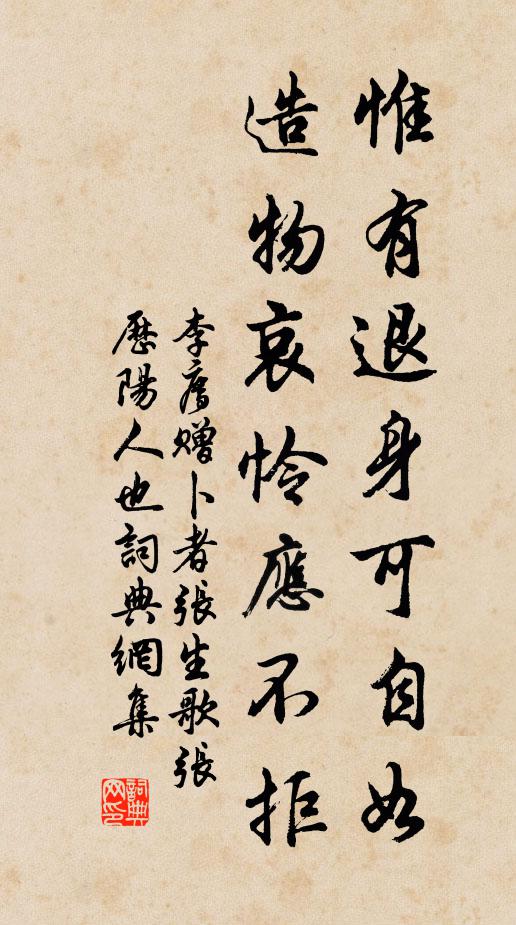 惟有退身可自如
造物哀怜應不拒
李廌贈卜者張生歌張
歷陽人也詞典網集
詞典
网印